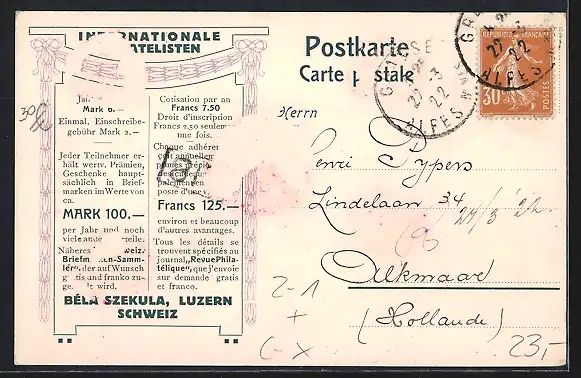 INTERNATIONALE
ATELISTEN
Mark 6.—
Einmal. Einschreibe-
gebühr Mark 2.—
Jeder Teilnehmer er-
hält wertv. Prämien,
Geschenke haupt-
sächlich in Brief-
marken im Werte von
ca.
MARK 100.—
per Jahr und noch
viele ande teile.
Näheres weiz.
Briefm en-Samm-
ler", der auf Wunsch
gratis und franko zu-
ge t wird.
Cotisation par an
Francs 7.50
Droit d'inscription
Francs 2.50 seulem
une fois.
Chaque adhérer
poste d'une
Francs 125.—
environ et beaucoup
d'autres avantages.
Tous les détails se
trouvent spécifiés au
journal „Revue Phila-
télique", que j'envoie
sur demande gratis
et franco.
BÉLA SZEKULA, LUZERN
SCHWEIZ
Postkarte
Carte p stale
Herrn
Henri Pypers
Lindelaan 34
Alkmaar
(Hollande)
24/3 22
2-1
+
(-x
23,-
RÉPUBLIQUE FRANÇAISE
30
POSTES
27-3
22
ALPES
27-3
22
ALPES